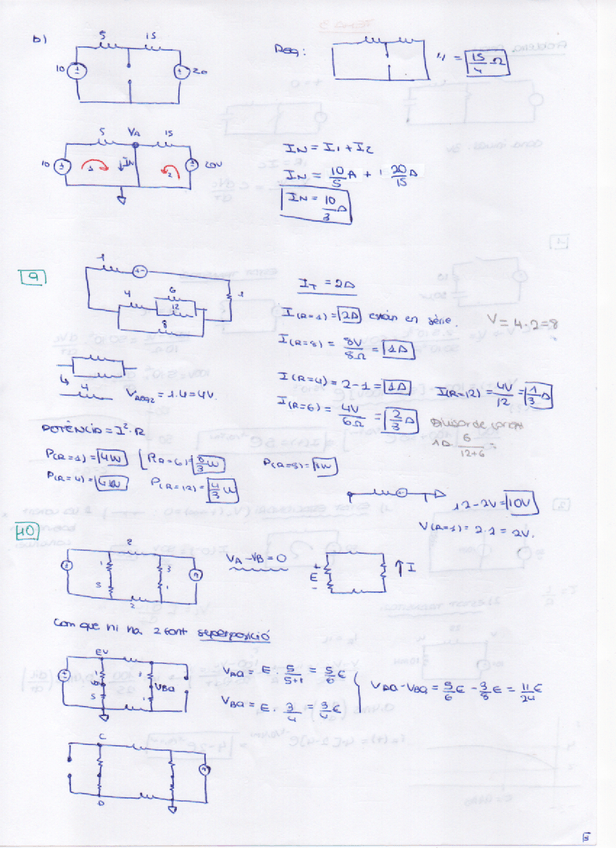 b)
5 15
10 20
Req: // = 15/4 Ω
5 VA 15
10 1 IN 2 20V
IN = I1 + I2
IN = 10/5 A + 20/15 A
IN = 10/3 A
9
1
6
4 12 1
8
IT = 2A
I(R=1) = 2A están en sèrie. V = 4·2=8
I(R=8) = 8V/8Ω = 1A
I(R=4) = 2-1 = 1A I(R=12) = 4V/12 = 1/3 A
I(R=6) = 4V/6Ω = 2/3 A
4 4
VReq2 = 1·4=4V.
1A 6/12+6 =
POTÈNCIA = I²·R
P(R=1) = 4W P(R=6) = 8/3 W P(R=8) = 8W
P(R=4) = 4W P(R=12) = 4/3 W
12-2V = 10V
V(R=1) = 2·1 = 2V.
10
2
1 3
VA-VB=0
+ E - I
2
Com que hi ha 2 font superposició
EV
VBQ
VAQ = E · 5/5+1 = 5/6 E
VBQ = E · 3/4 = 3/4 E
C
D
5